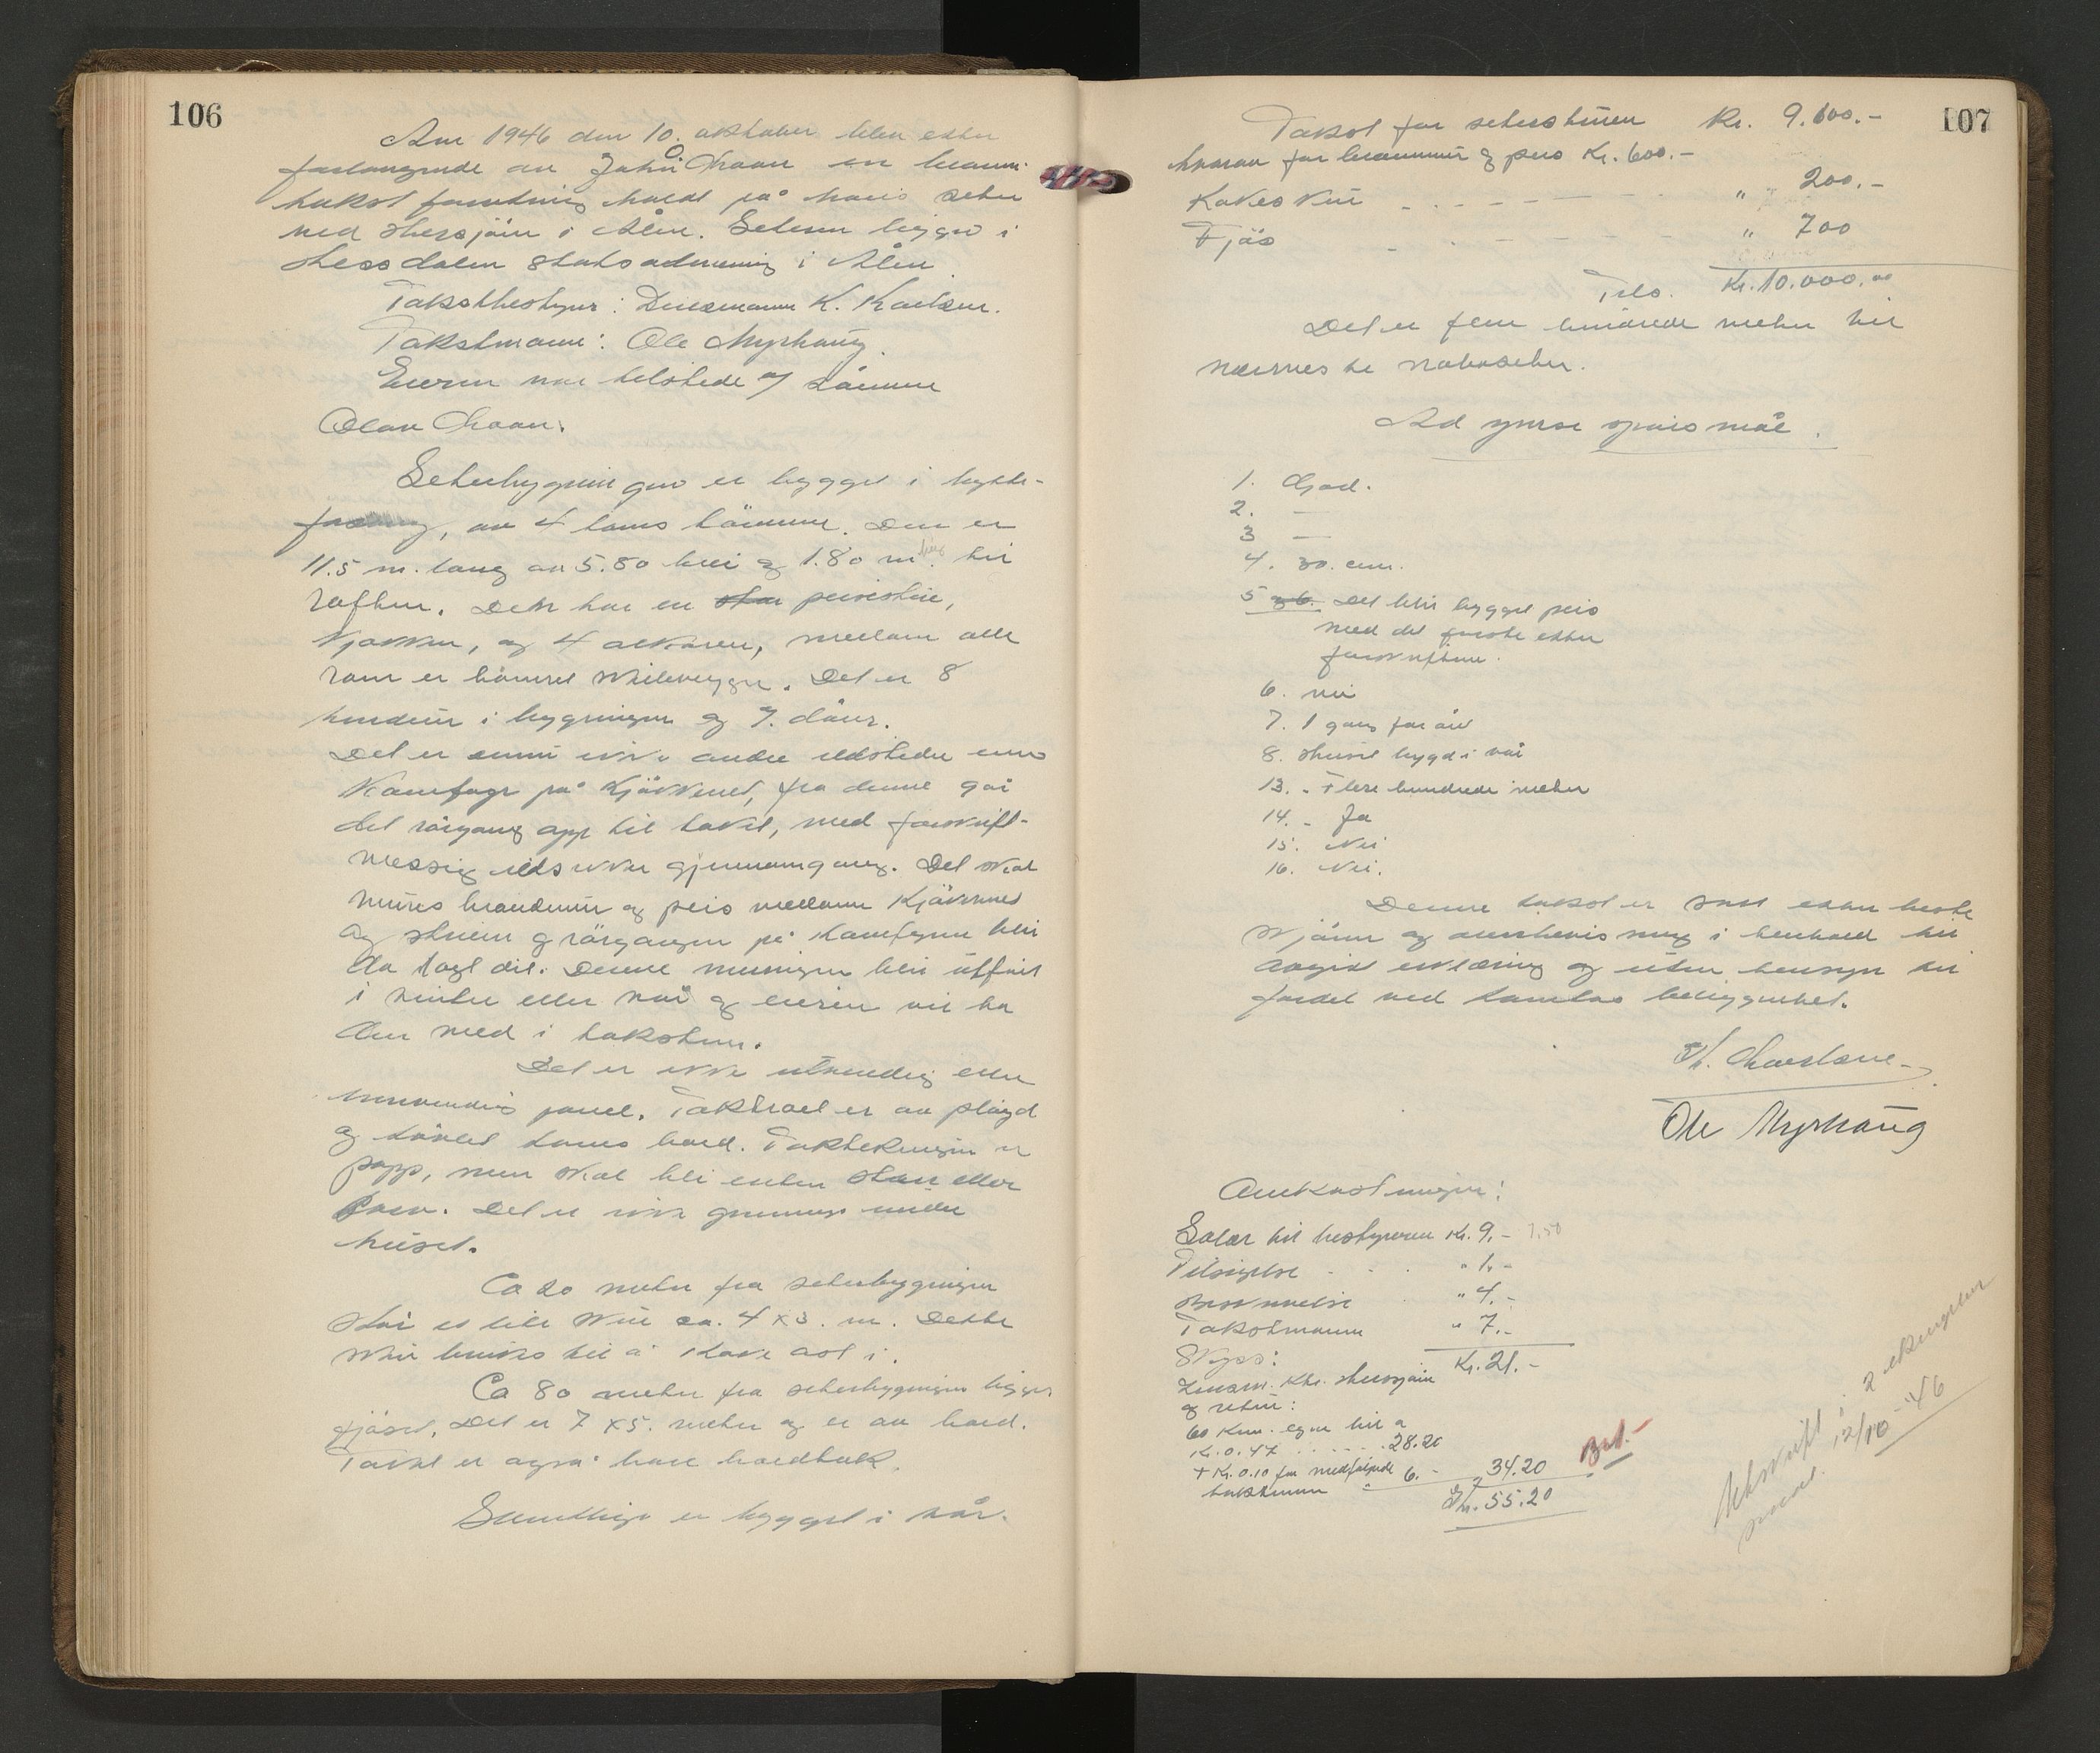 106
Aar 1946 den 10. oktober blev etter
forlangende av John Graan en brann-
takst forretning holdt på hans seter
ved Hessjöen i Ålen. Seteren ligger i
Hessdalen statsalmenning i Ålen.
Takstbestyrer: Lensmann K. Kaelsen.
Takstmann: Ole Myrhaug.
Eieren var tilstede v/ sönnen
Olav Graan.
Seterbygningen er bygget i hytte-
fasong, av 4 toms tömmer. Den er
11.5 m. lang av 5.80 brei og 1.80 m. hög til
raften. Den har en stor peisestue,
kjökken, og 4 alkover, mellom alle
rom er tömret skillevegger. Det er 8
vinduer i bygningen og 7 dörer.
Det er ennu ikke andre ildsteder enn
kamfyr på kjökkenet, fra denne går
det rörgang opp til taket, med forskrift-
messig ildsikker gjennomgang. Det skal
mures brandmur og peis mellom kjökkenet
og stuen og rörgangen på kamfyren blir
da lagt dit. Denne muringen blir utfört
i vinter eller vår og eieren vil ha
den med i taksten.
Det er ikke utvendig eller
innvendig panel. Taktroet er av plöyd
og hövlet toms bord. Taktekningen er
papp, men skal bli enten sten eller
torv. Det er ikke grunnmur under
huset.
Ca 20 meter fra seterbygningen
står et lite skur ca. 4 x 3. m. Dette
skur brukes til å koke ost i.
Ca 80 meter fra seterbygningen ligger
fjöset. Det er 7 x 5. meter og er av bord.
Taket er også bare bordtak.
Samtlige er bygget i vår.
107
Takst for seterstuen Kr. 9.100.-
hvorav for brannmur og peis Kr. 600.-
Kokeskur " 200.-
Fjös " 700
Tils. Kr. 10.000.00
Det er fem hundrede meter til
nærmeste naboseter.
Ad ymse spörsmål.
1. God.
2. —
3 —
4. 30. cm.
5 og 6. Det blir bygget peis
med det förste etter
forskriftene.
6. nei
7. 1 gang for året
8. Huset bygd i vår
13. - Flere hundrede meter
14. - Ja
15. Nei
16. Nei.
Denne takst er satt etter beste
skjönn og overbevisning i henhold til
avgitt erklæring og uten hensyn til
fordel ved tomtas beliggenhet.
Ole Myrhaug
Omkostninger:
Salær til bestyreren Kr. 9.- 7,50
Tilsigelse " 1.-
Beskrivelse " 4.-
Takstmann " 7.-
Kr. 21.-
Skyss:
Lensm. Ktr. Hessjöen
og retur:
60 Km. egen bil a
Kr. 0.47 . . . . . 28.20
+ Kr. 0.10 for medfölgende
takstmann " 6.- 34.20
Kr. 55.20
Bet.-
Utskrift i 2 eksemplar
sendt. 12/10-46